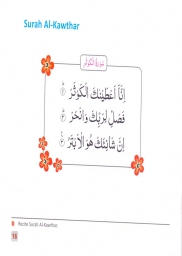 Surah Al-Kawthar
سُورَةُ الْكَوْثَر
إِنَّا أَعْطَيْنَكَ الْكَوْثَرَ ١
فَصَلِّ لِرَبِّكَ وَانْحَرْ ٢
إِنَّ شَانِئَكَ هُوَ الْأَبْتَرُ ٣
Recite Surah Al-Kawthar.